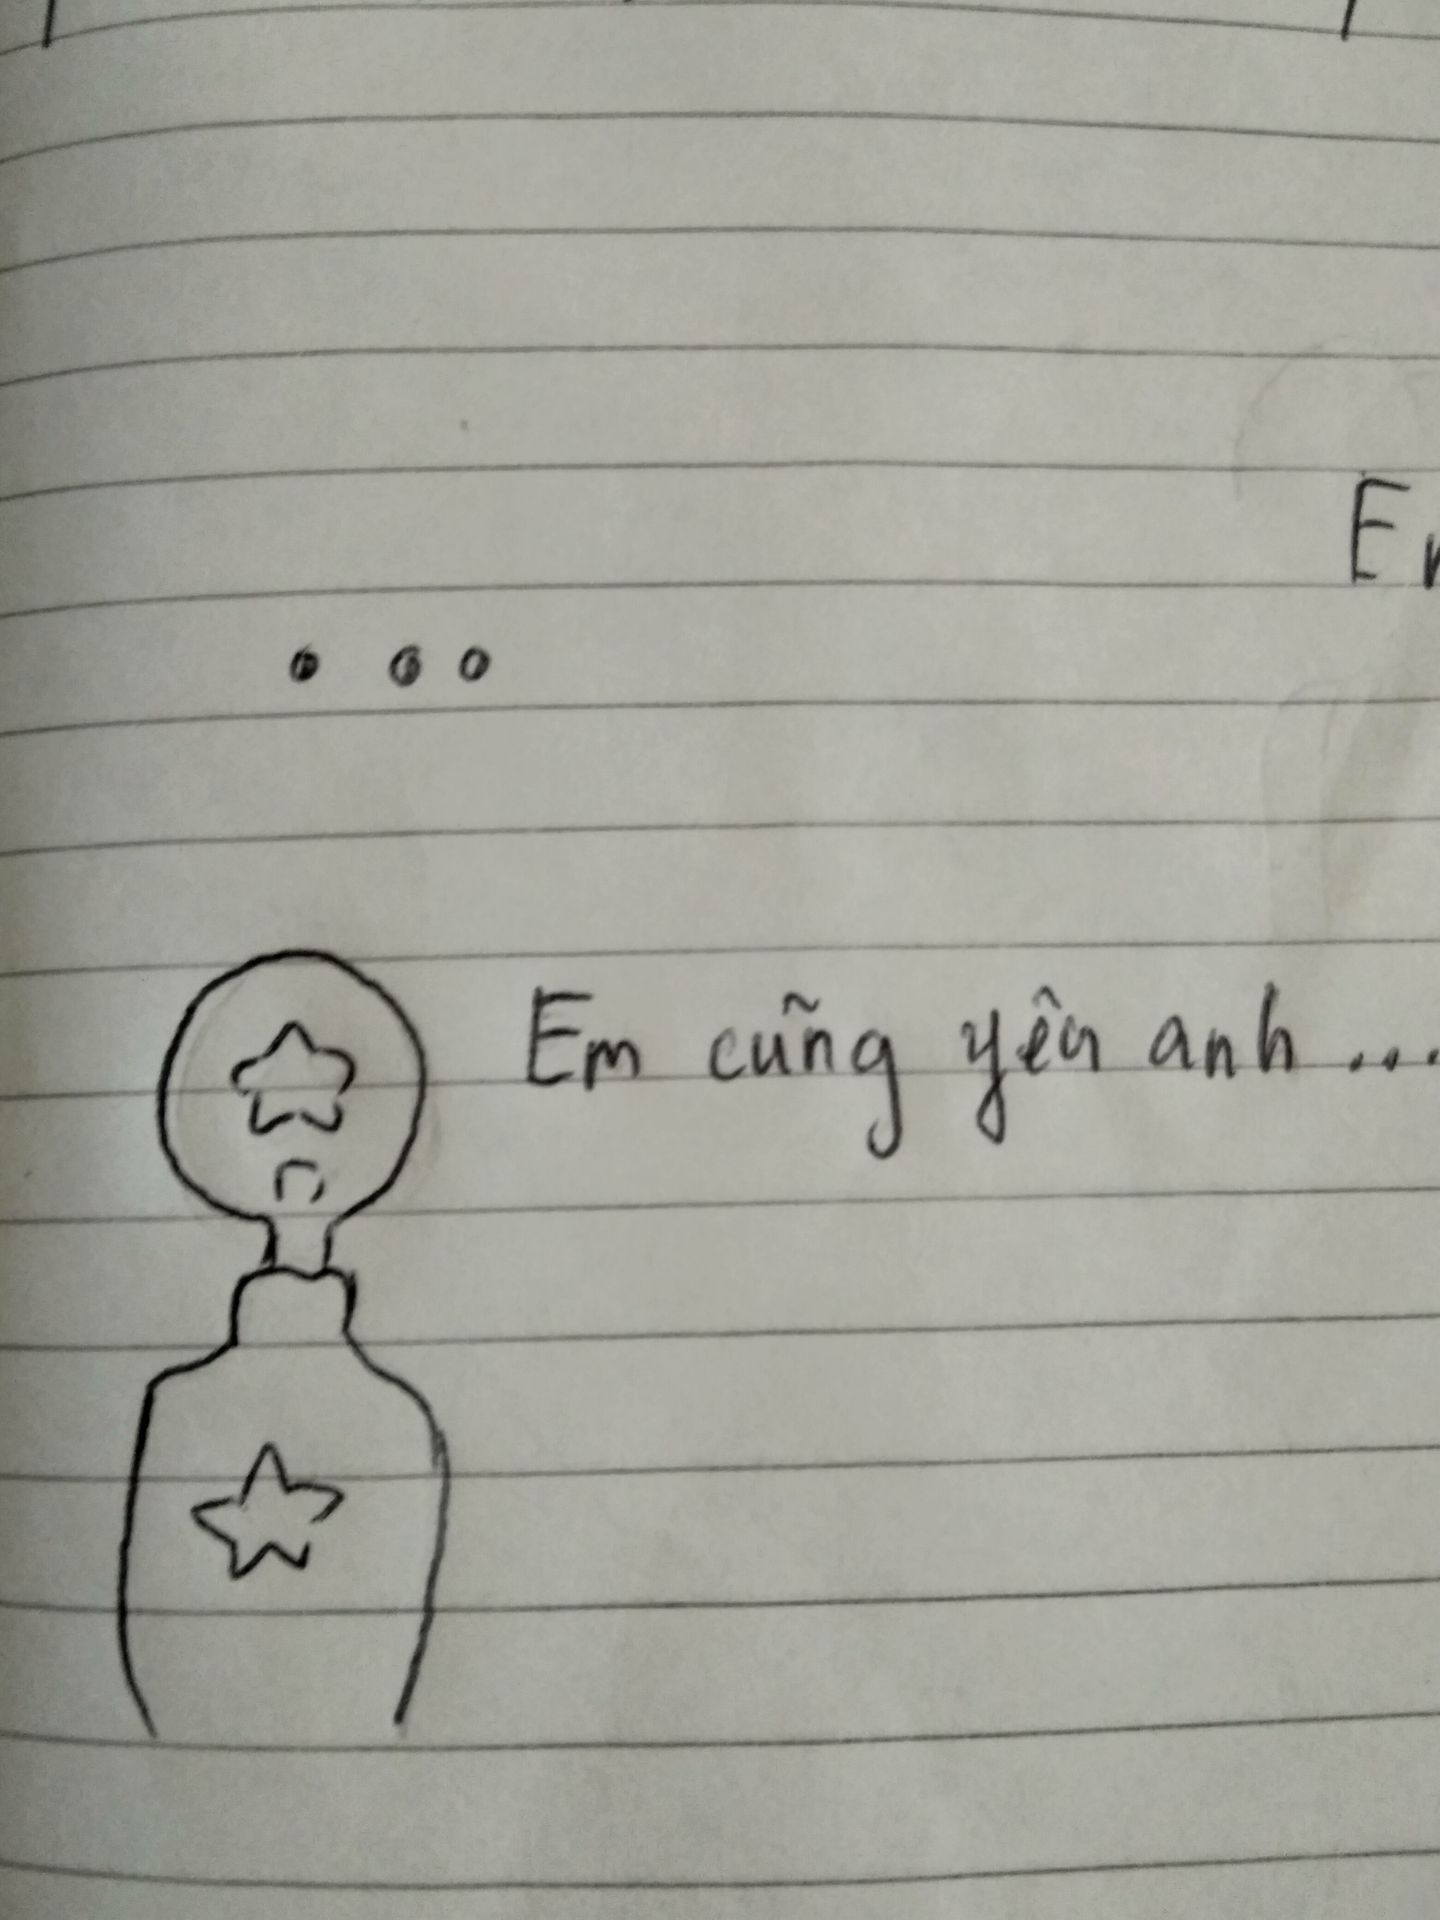 Em cũng yêu anh ...